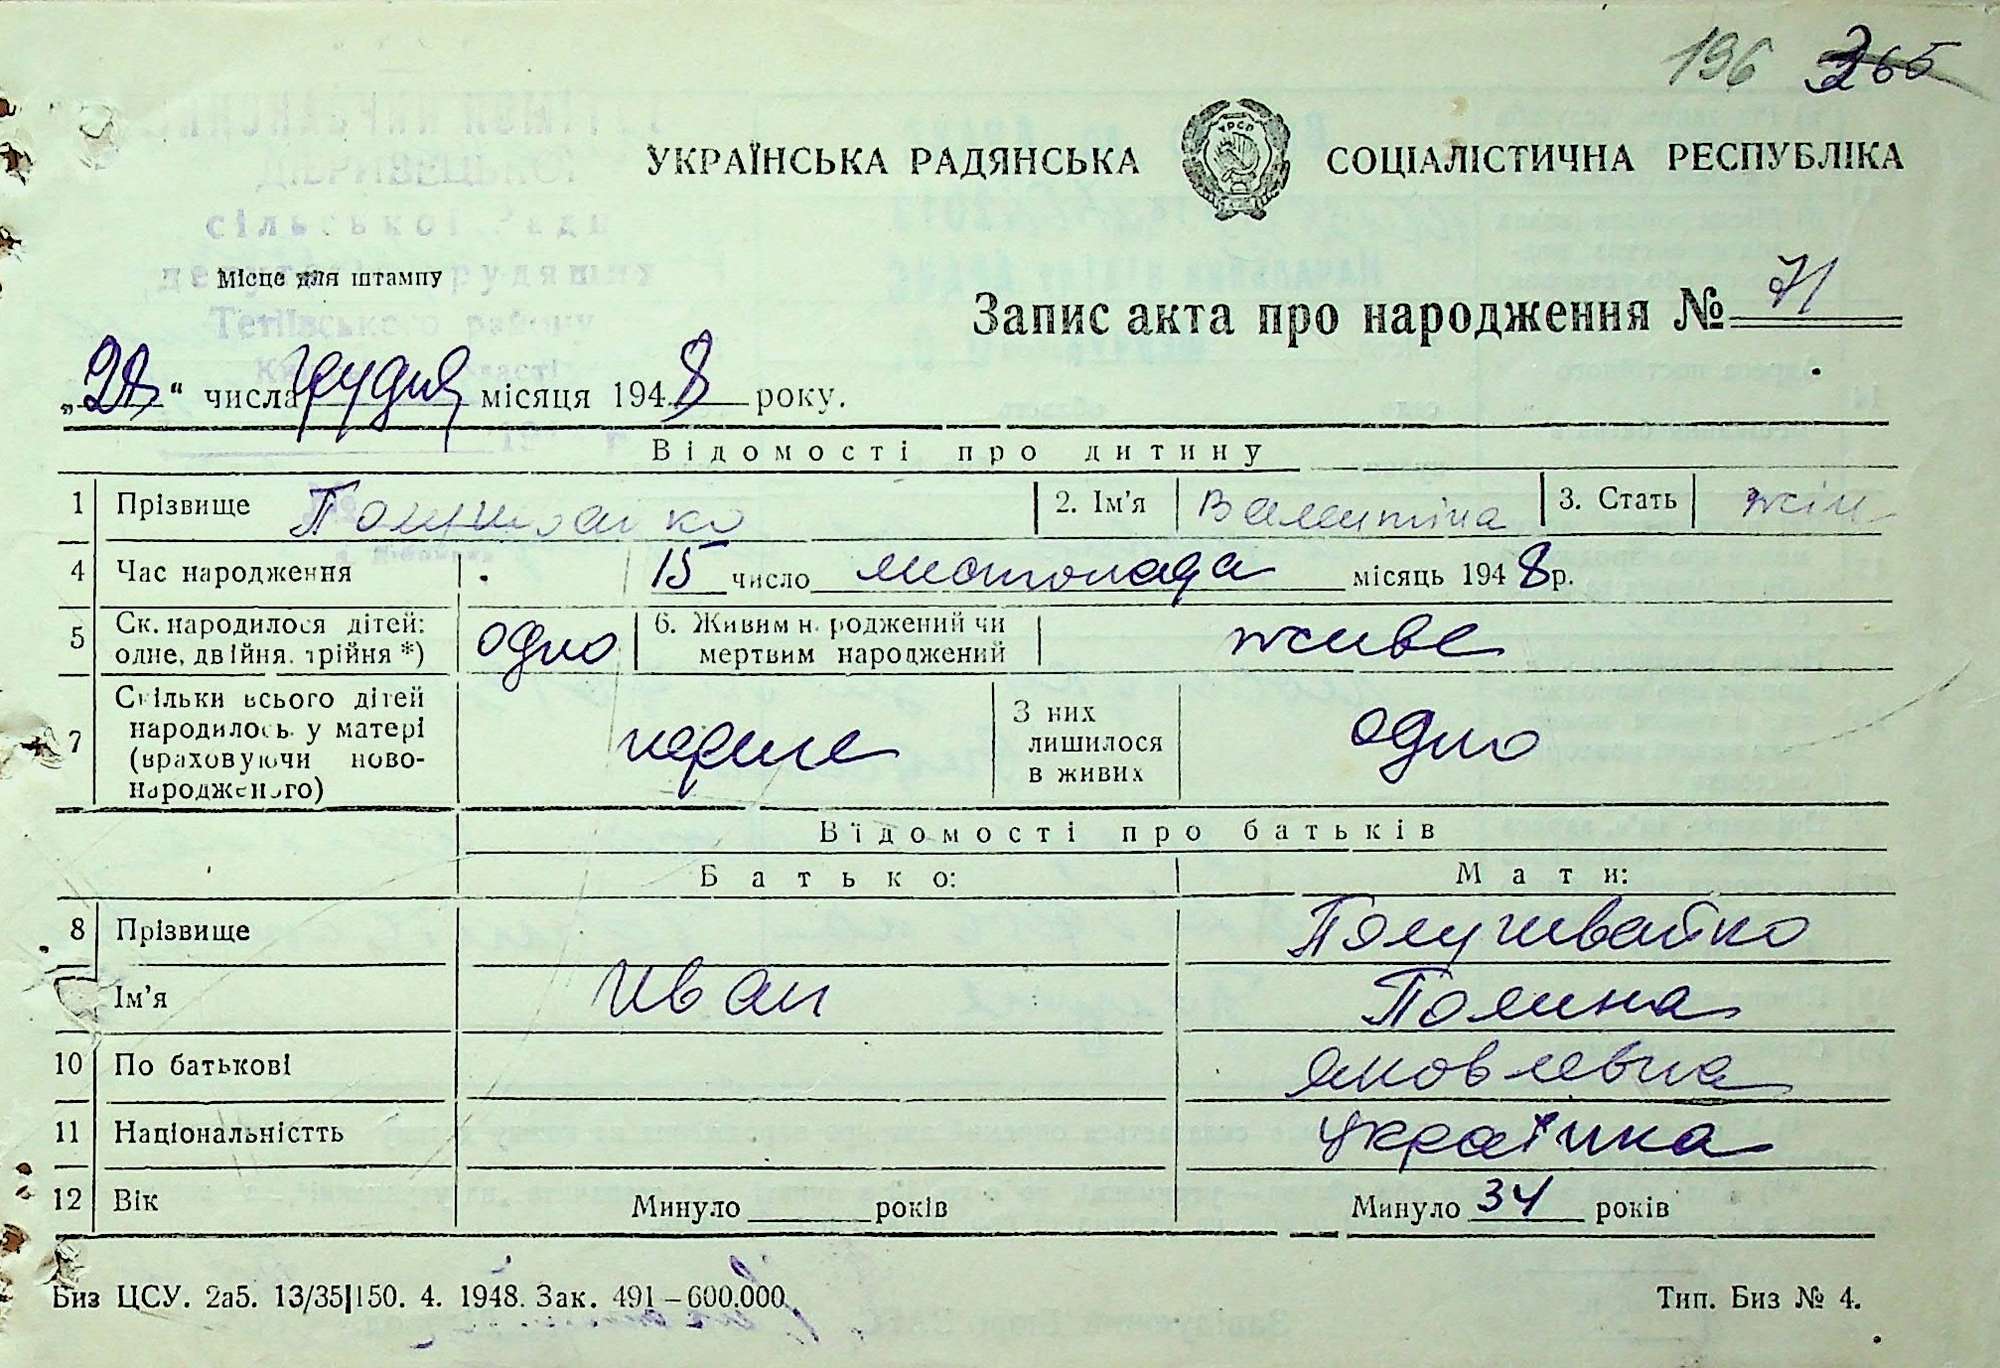 196 365
УКРАЇНСЬКА РАДЯНСЬКА СОЦІАЛІСТИЧНА РЕСПУБЛІКА
сільської Ради
депутатів трудящих
Тетіївського району
Місце для штампу
Запис акта про народження № 71
" " числа грудня місяця 1948 року.
Відомості про дитину
1 Прізвище 2. Ім'я Валентіна 3. Стать жін
4 Час народження 15 число листопада місяць 1948 р.
5 Ск. народилося дітей: одне, двійня, трійня *) одно 6. Живим народжений чи мертвим народжений живе
7 Скільки всього дітей народилось у матері (враховуючи ново-народженого) перше З них лишилося в живих одно
Відомості про батьків
Батько: Мати:
8 Прізвище Полушвайко
Ім'я Иван Полина
10 По батькові Яковлевна
11 Національністть Українка
12 Вік Минуло ____ років Минуло 34 років
Биз ЦСУ. 2а5. 13/35|150. 4. 1948. Зак. 491–600.000. Тип. Биз № 4.